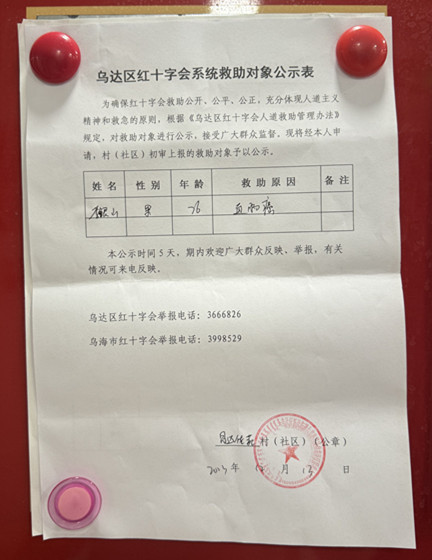 乌达区红十字会系统救助对象公示表
为确保红十字会救助公开、公平、公正，充分体现人道主义
精神和救急的原则，根据《乌达区红十字会人道救助管理办法》
规定，对救助对象进行公示，接受广大群众监督。现将经本人申
请，村（社区）初审上报的救助对象予以公示。
姓名 性别 年龄 救助原因 备注
男 76
本公示时间 5 天，期内欢迎广大群众反映、举报，有关
情况可来电反映。
乌达区红十字会举报电话：3666826
乌海市红十字会举报电话：3998529
村（社区）（公章）
年 月 13 日